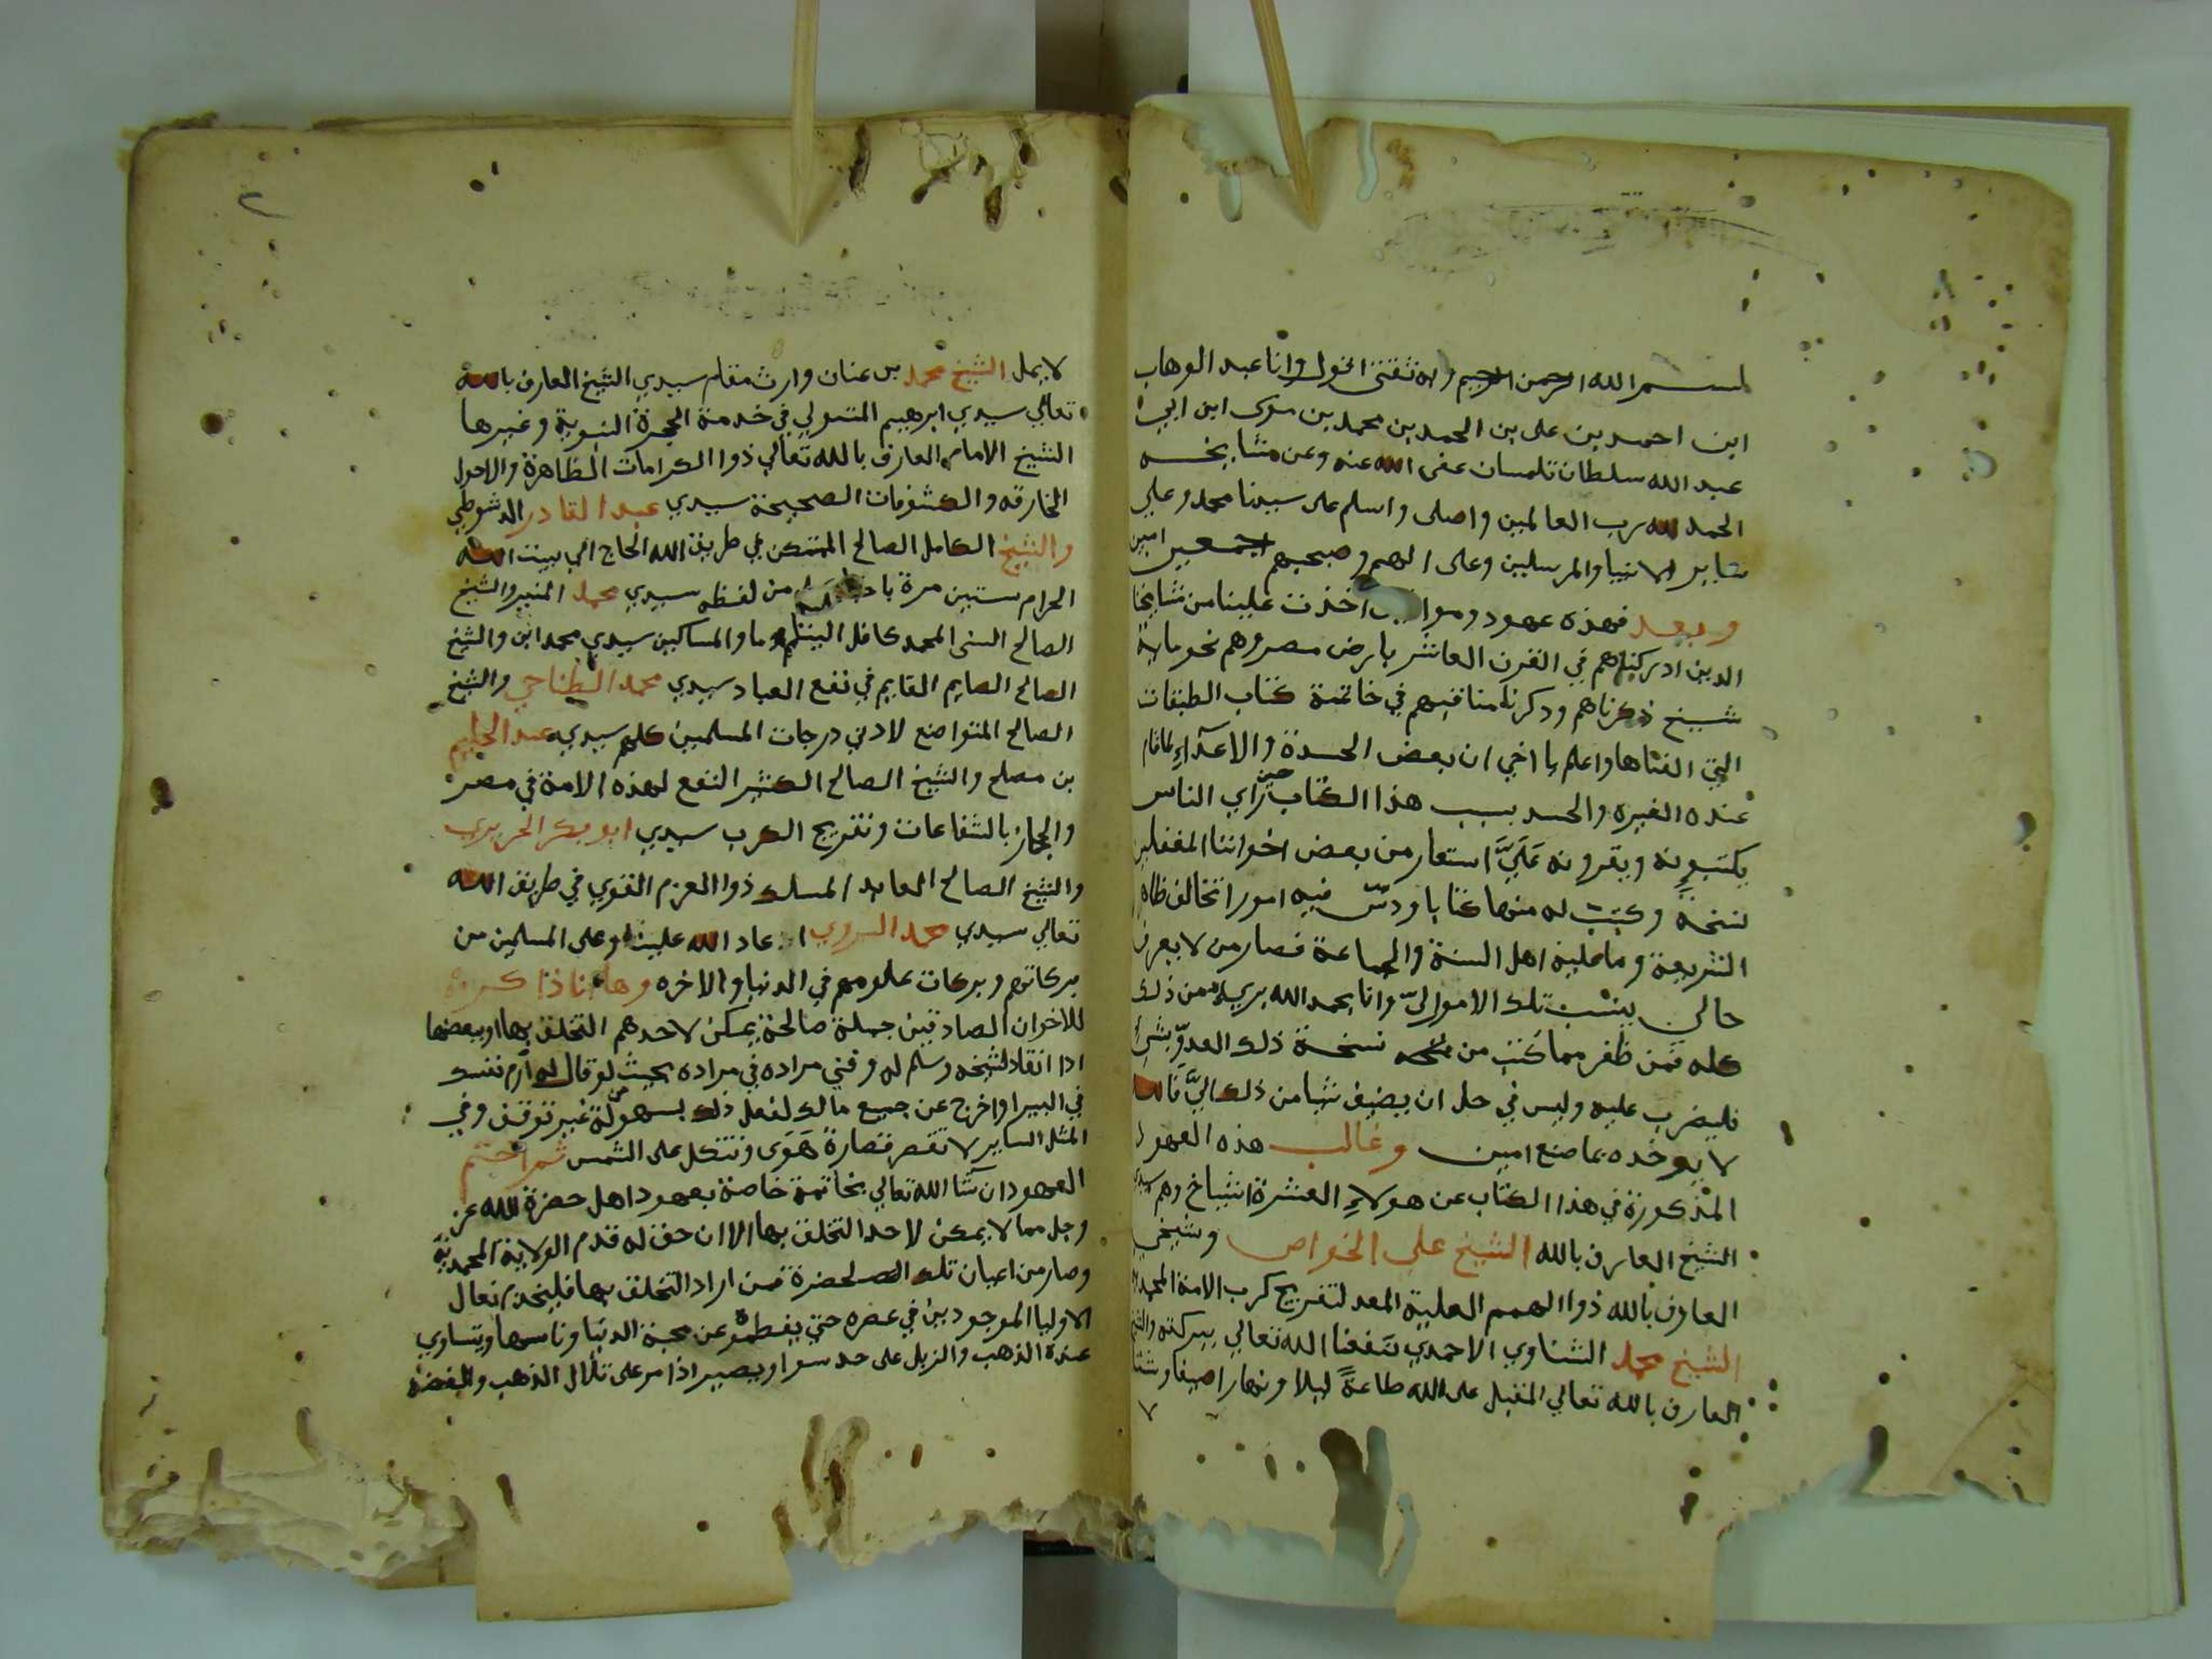 بسم الله الرحمن الرحيم وبه ثقتي اقول وانا عبد الوهاب
ابن احمد بن علي بن احمد بن محمد بن موسى ابن ابي
عبد الله سلطان تلمسان عفى الله عنه وعن مشايخه
الحمد لله رب العالمين واصلى واسلم على سيدنا محمد وعلي
ساير الانبيا والمرسلين وعلى الهم وصحبهم اجمعين امين
وبعد فهذه عهود ومواثيق اخذت علينا من مشايخنا
الدين ادركناهم في القرن العاشر بارض مصر وهم نحو ماية
شيخ ذكرناهم وذكرنا مناقبهم في خاتمة كتاب الطبقات
التي الفناها واعلم يا اخي ان بعض الحسدة والاعدآء لما قام
عنده الغيره والحسد بسبب هذا الكتاب حين راي الناس
يكتبونه ويقرونه عَلَيَّ استعار من بعض اخواننا المغفلين
نسخة وكتب له منها كتابا ودسّ فيه امورا تخالف ظاهر
الشريعة وما عليه اهل السنة والجماعة فصار من لا يعرف
حالي ينسب تلك الامور اليّ وانا بحمد الله بريء من ذلك
كله فمن ظفر مما كتب من نسخة ذلك العدوّ بشئ
فليضرب عليه وليس في حل ان يضيف شيا من ذلك اليَّ فالله
لا يوخده بما صنع امين وغالب هذه العهود
المذكورة في هذا الكتاب عن هولاءِ العشرة اشياخ وهم سيدي
الشيخ العارف بالله الشيخ علي الخواص وشيخي
العارف بالله ذوا الهمم العلية المعد لتفريج كرب الامة المحمدية
الشيخ محمد الشناوي الاحمدي نفعنا الله تعالي ببركته والشيخ
العارف بالله تعالي المقبل على الله طاعةً ليلا ونهارا صيفا وشتا
لا يمل الشيخ محمد بن عنان وارث مقام سيدي الشيخ العارف بالله
تعالي سيدي ابرهيم المتبولي في خدمة الحجرة النبوية وغيرها
الشيخ الامام العارف بالله تعالي ذوا الكرامات الظاهرة والاحوال
الخارقه والكشوفات الصحيحة سيدي عبد القادر الدشطوطي
والشيخ الكامل الصالح المتمكن في طريق الله الحاج الي بيت الله
الحرام ستين مرة من لفظه سيدي محمد المنير والشيخ
الصالح السني المحمدي كافل اليتامي والمساكين سيدي محمد ابن والشيخ
الصالح الصايم القايم في نفع العباد سيدي محمد الطناحي والشيخ
الصالح المتواضع لادني درجات المسلمين كلهم سيدي عبد الحليم
بن مصلح والشيخ الصالح الكثير النفع لهذه الامة في مصر
والحجاز بالشفاعات وتفريج الكرب سيدي ابو بكر الحريري
والشيخ الصالح العابد المسلك ذوا العزم القوي في طريق الله
تعالي سيدي محمد السروي اعاد الله علينا وعلى المسلمين من
بركاتهم وبركات علومهم في الدنيا والاخره وها انا ذاكر
للاخوان الصادقين جملة صالحة يمكن لاحدهم التخلق بها او ببعضها
ادا انقاد لشيخه وسلم له وفني مراده في مراده بحيث لو قال له ارم نفسك
في البير او اخرج عن جميع مالك لفعل ذلك بسهولة من غير توقف وفي
المثل الساير لا تقصر قصارة هَوَى وتتكل على الشمس ثم اختم
العهود ان شا الله تعالي بخاتمة خاصة بعهود اهل حضرة الله عز
وجل مما لا يمكن لاحد التخلق بها الا ان حق له قدم الولاية المحمدية
وصار من اعيان تلك الحضرة فمن اراد التخلق بها فليخدم نعال
الاوليا الموجودين في عصره حتي يفطموه عن محبة الدنيا وناسها ويتساوي
عنده الذهب والزبل على حد سوا ويصير اذا مر على تلال الذهب والفضة